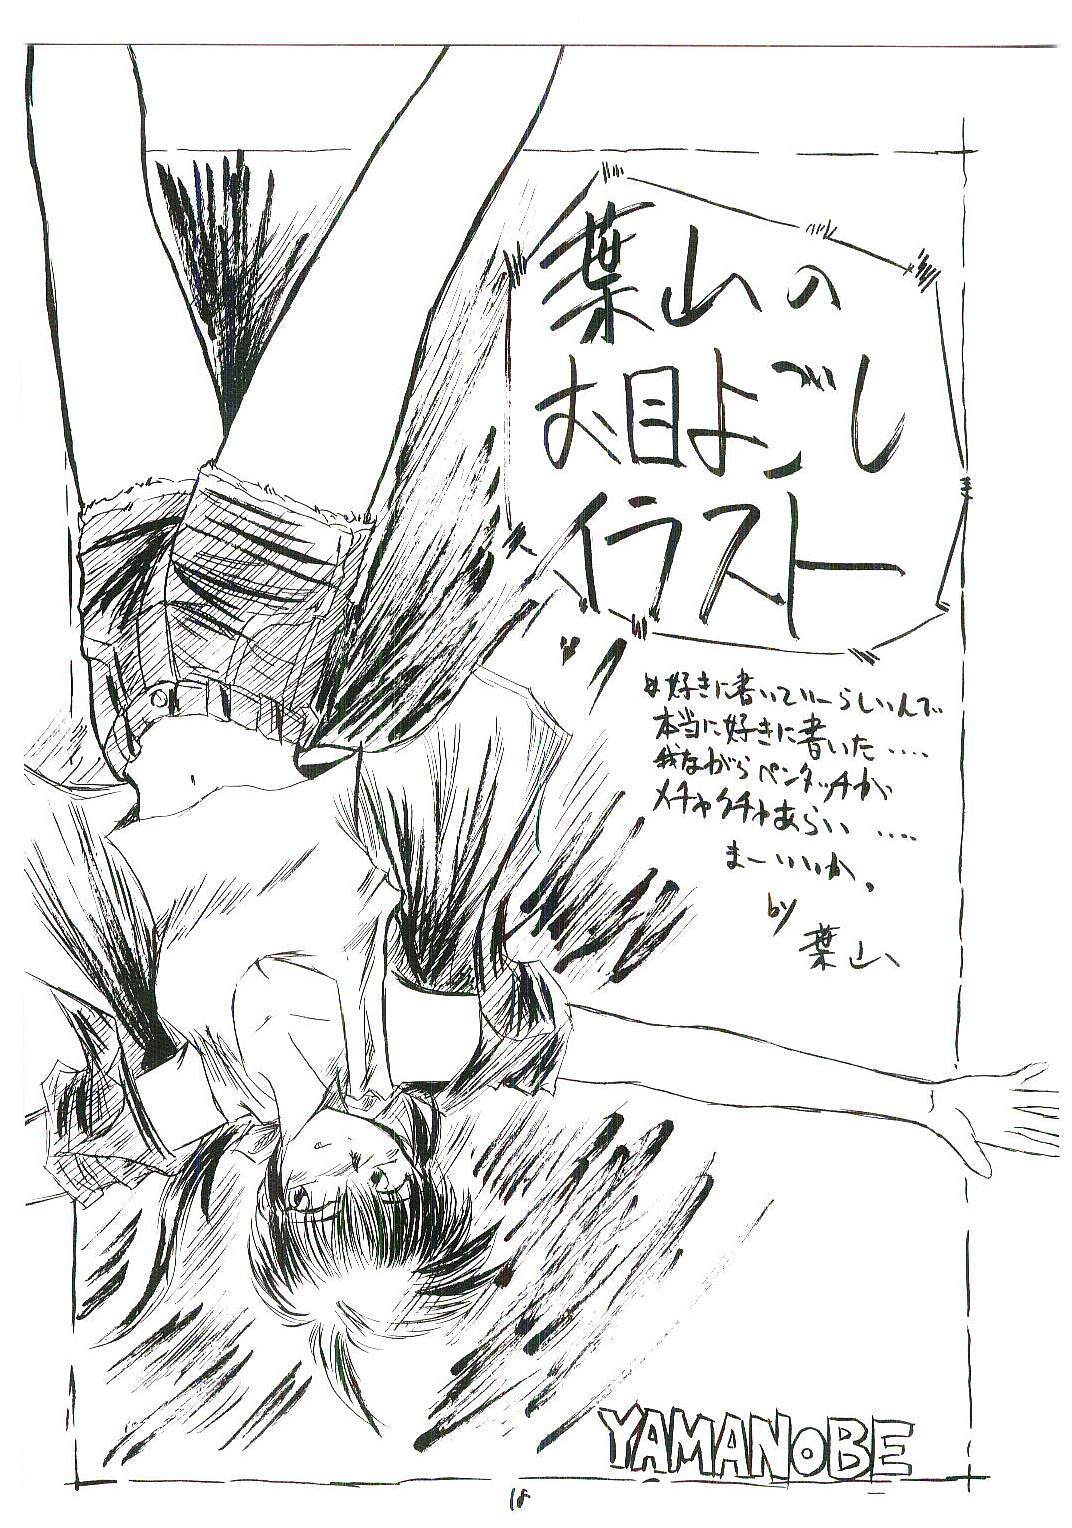 葉山の
お目よごし
イラスト
好きに書いていーらしいんで
本当に好きに書いた....
我ながらペンタッチが
メチャクチャあらい....
まーいいか。
by
葉山
YAMANOBE
18